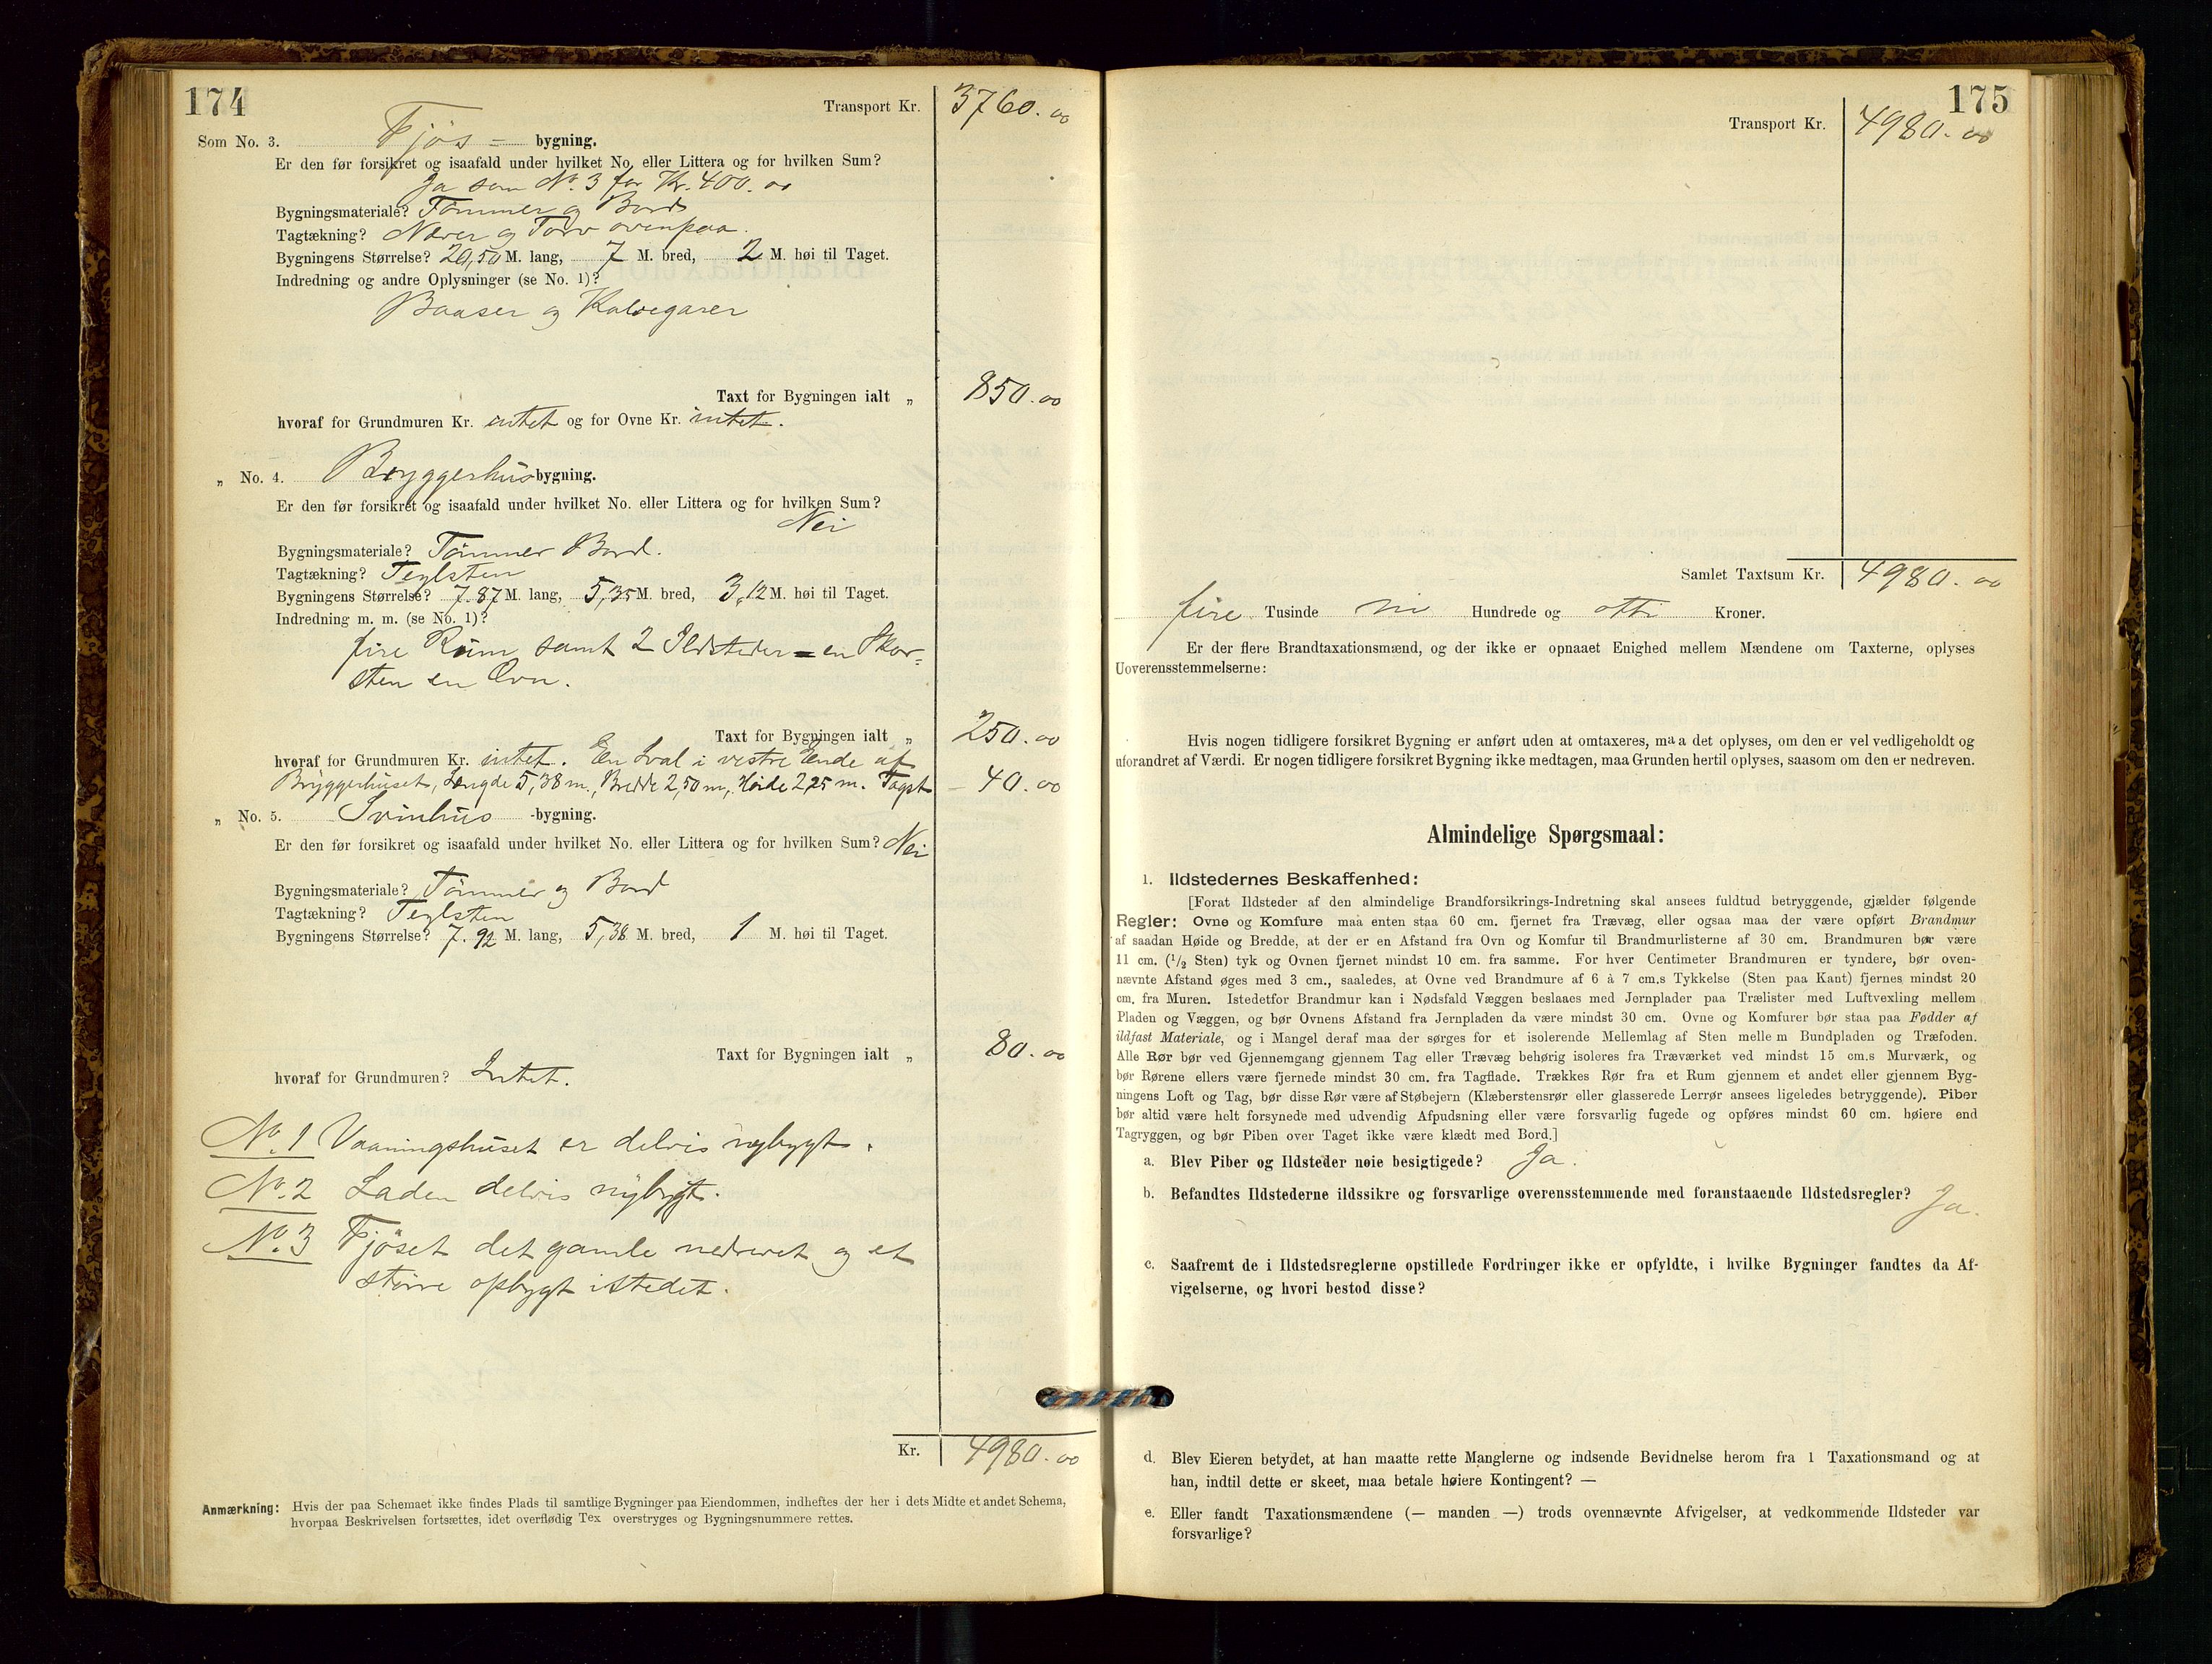 174
Transport Kr. 3760.00
Som No. 3. Fjøs - bygning.
Er den før forsikret og isaafald under hvilket No. eller Littera og for hvilken Sum?
Ja som No. 3 for Kr. 400.00
Bygningsmateriale? Tømmer og Bord
Tagtækning? Næver og Torv ovenpaa.
Bygningens Størrelse? 20,50 M. lang, 7 M. bred, 2 M. høi til Taget.
Indredning og andre Oplysninger (se No. 1)?
Baaser og Kalvegarer
Taxt for Bygningen ialt „ 850.00
hvoraf for Grundmuren Kr. intet og for Ovne Kr. intet.
„ No. 4. Bryggerhus bygning.
Er den før forsikret og isaafald under hvilket No. eller Littera og for hvilken Sum?
Nei
Bygningsmateriale? Tømmer Bord.
Tagtækning? Teglsten
Bygningens Størrelse? 7.87 M. lang, 5,35 M. bred, 3,12 M. høi til Taget.
Indredning m. m. (se No. 1)?
fire Rum samt 2 Ildsteder = en Skor-
sten en Ovn.
Taxt for Bygningen ialt „ 250.00
hvoraf for Grundmuren Kr. intet. En Sval i vestre Ende af
Bryggerhuset, Længde 5,38 m., Bredde 2,50 m, Høide 2,25 m. Tagst - 40.00
„ No. 5. Svinhus -bygning.
Er den før forsikret og isaafald under hvilket No. eller Littera og for hvilken Sum? Nei
Bygningsmateriale? Tømmer og Bord
Tagtækning? Teglsten
Bygningens Størrelse? 7.92 M. lang, 5,38 M. bred, 1 M. høi til Taget.
Taxt for Bygningen ialt „ 80.00
hvoraf for Grundmuren? Intet.
No. 1 Vaaningshuset er delvis nybygt.
No. 2 Laden delvis nybygt.
No. 3 Fjøset det gamle nedrevet og et
større opbygt istedet.
Kr. 4980.00
Anmærkning: Hvis der paa Schemaet ikke findes Plads til samtlige Bygninger paa Eiendommen, indheftes der her i dets Midte et andet Schema,
hvorpaa Beskrivelsen fortsættes, idet overflødig Tex overstryges og Bygningsnummere rettes.
175
Transport Kr. 4980.00
Samlet Taxtsum Kr. 4980.00
fire Tusinde ni Hundrede og otti Kroner.
Er der flere Brandtaxationsmænd, og der ikke er opnaaet Enighed mellem Mændene om Taxterne, oplyses
Uoverensstemmelserne:
Hvis nogen tidligere forsikret Bygning er anført uden at omtaxeres, maa det oplyses, om den er vel vedligeholdt og
uforandret af Værdi. Er nogen tidligere forsikret Bygning ikke medtagen, maa Grunden hertil oplyses, saasom om den er nedreven.
Almindelige Spørgsmaal:
1. Ildstedernes Beskaffenhed:
[Forat Ildsteder af den almindelige Brandforsikrings-Indretning skal ansees fuldtud betryggende, gjælder følgende
Regler: Ovne og Komfure maa enten staa 60 cm. fjernet fra Trævæg, eller ogsaa maa der være opført Brandmur
af saadan Høide og Bredde, at der er en Afstand fra Ovn og Komfur til Brandmurlisterne af 30 cm. Brandmuren bør være
11 cm. (1/2 Sten) tyk og Ovnen fjernet mindst 10 cm. fra samme. For hver Centimeter Brandmuren er tyndere, bør oven-
nævnte Afstand øges med 3 cm., saaledes, at Ovne ved Brandmure af 6 à 7 cm.s Tykkelse (Sten paa Kant) fjernes mindst 20
cm. fra Muren. Istedetfor Brandmur kan i Nødsfald Væggen beslaaes med Jernplader paa Trælister med Luftvexling mellem
Pladen og Væggen, og bør Ovnens Afstand fra Jernpladen da være mindst 30 cm. Ovne og Komfurer bør staa paa Fødder af
ildfast Materiale, og i Mangel deraf maa der sørges for et isolerende Mellemlag af Sten mellem Bundpladen og Træfoden.
Alle Rør bør ved Gjennemgang gjennem Tag eller Trævæg behørig isoleres fra Træværket ved mindst 15 cm.s Murværk, og
bør Rørene ellers være fjernede mindst 30 cm. fra Tagflade. Trækkes Rør fra et Rum gjennem et andet eller gjennem Byg-
ningens Loft og Tag, bør disse Rør være af Støbejern (Klæberstensrør eller glasserede Lerrør ansees ligeledes betryggende). Piber
bør altid være helt forsynede med udvendig Afpudsning eller være forsvarlig fugede og opføres mindst 60 cm. høiere end
Tagryggen, og bør Piben over Taget ikke være klædt med Bord.]
a. Blev Piber og Ildsteder nøie besigtigede? Ja.
b. Befandtes Ildstederne ildssikre og forsvarlige overensstemmende med foranstaaende Ildstedsregler? Ja.
c. Saafremt de i Ildstedsreglerne opstillede Fordringer ikke er opfyldte, i hvilke Bygninger fandtes da Af-
vigelserne, og hvori bestod disse?
d. Blev Eieren betydet, at han maatte rette Manglerne og indsende Bevidnelse herom fra 1 Taxationsmand og at
han, indtil dette er skeet, maa betale høiere Kontingent? —
e. Eller fandt Taxationsmændene (— manden —) trods ovennævnte Afvigelser, at vedkommende Ildsteder var
forsvarlige?